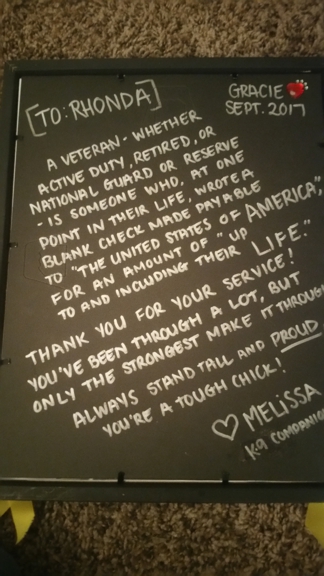 [TO: RHONDA]
GRACIE
SEPT. 2017
A VETERAN - WHETHER
ACTIVE DUTY, RETIRED, OR
NATIONAL GUARD OR RESERVE
- IS SOMEONE WHO, AT ONE
POINT IN THEIR LIFE, WROTE A
BLANK CHECK MADE PAYABLE
TO "THE UNITED STATES OF AMERICA,"
FOR AN AMOUNT OF "UP
TO AND INCLUDING THEIR LIFE."
THANK YOU FOR YOUR SERVICE!
YOU'VE BEEN THROUGH A LOT, BUT
ONLY THE STRONGEST MAKE IT THROUGH
ALWAYS STAND TALL AND PROUD
YOU'RE A TOUGH CHICK!
♡ MELISSA
K-9